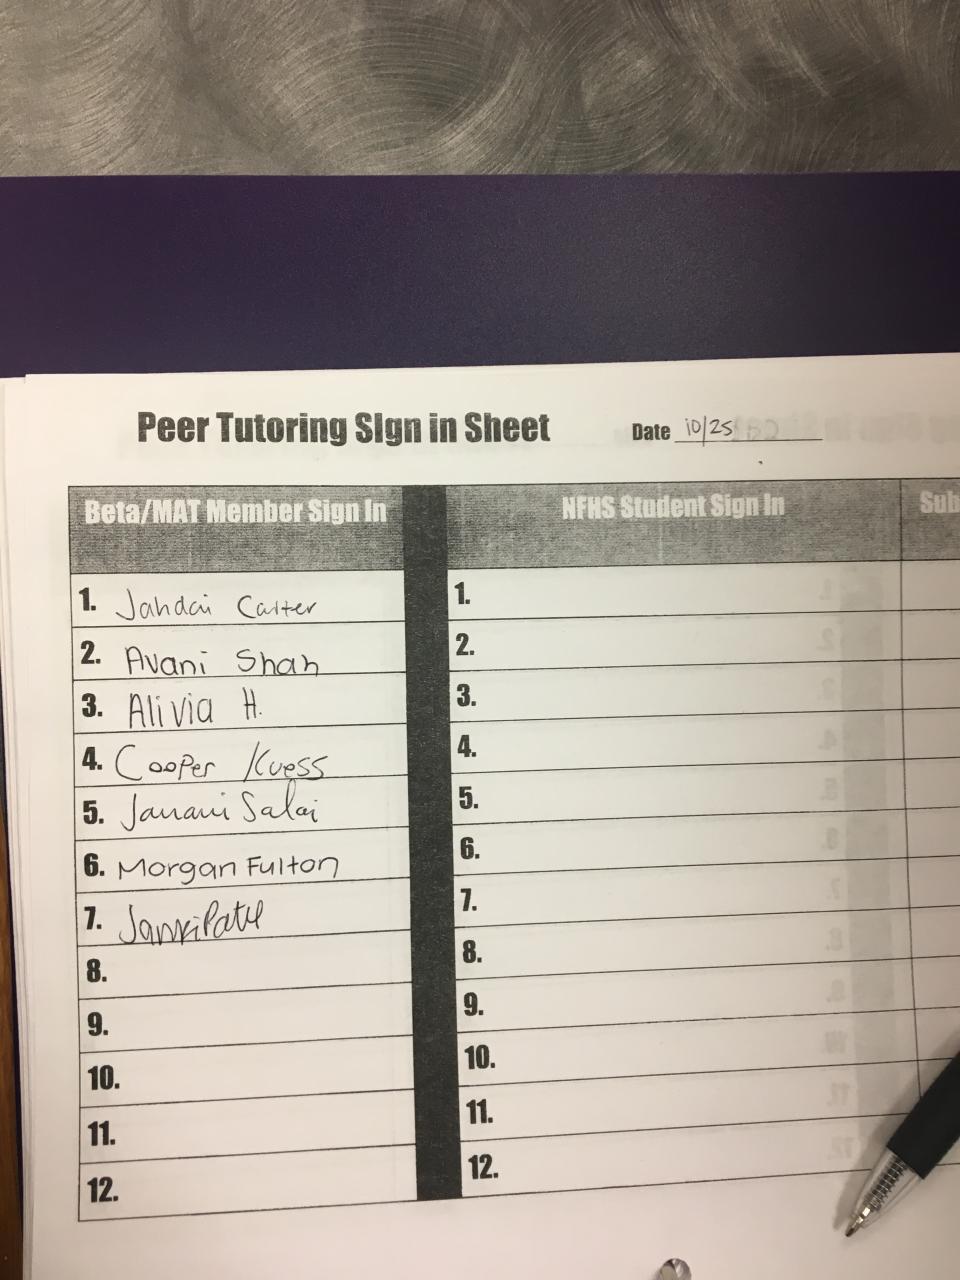 Peer Tutoring Sign in Sheet
Date 10/25
Beta/MAT Member Sign In
NFHS Student Sign In
Sub
1. Jahdai Carter
2. Avani Shah
3. Alivia H.
4. Cooper Kuess
5. Janani Salai
6. Morgan Fulton
7. Janki Patel
8.
9.
10.
11.
12.
1.
2.
3.
4.
5.
6.
7.
8.
9.
10.
11.
12.